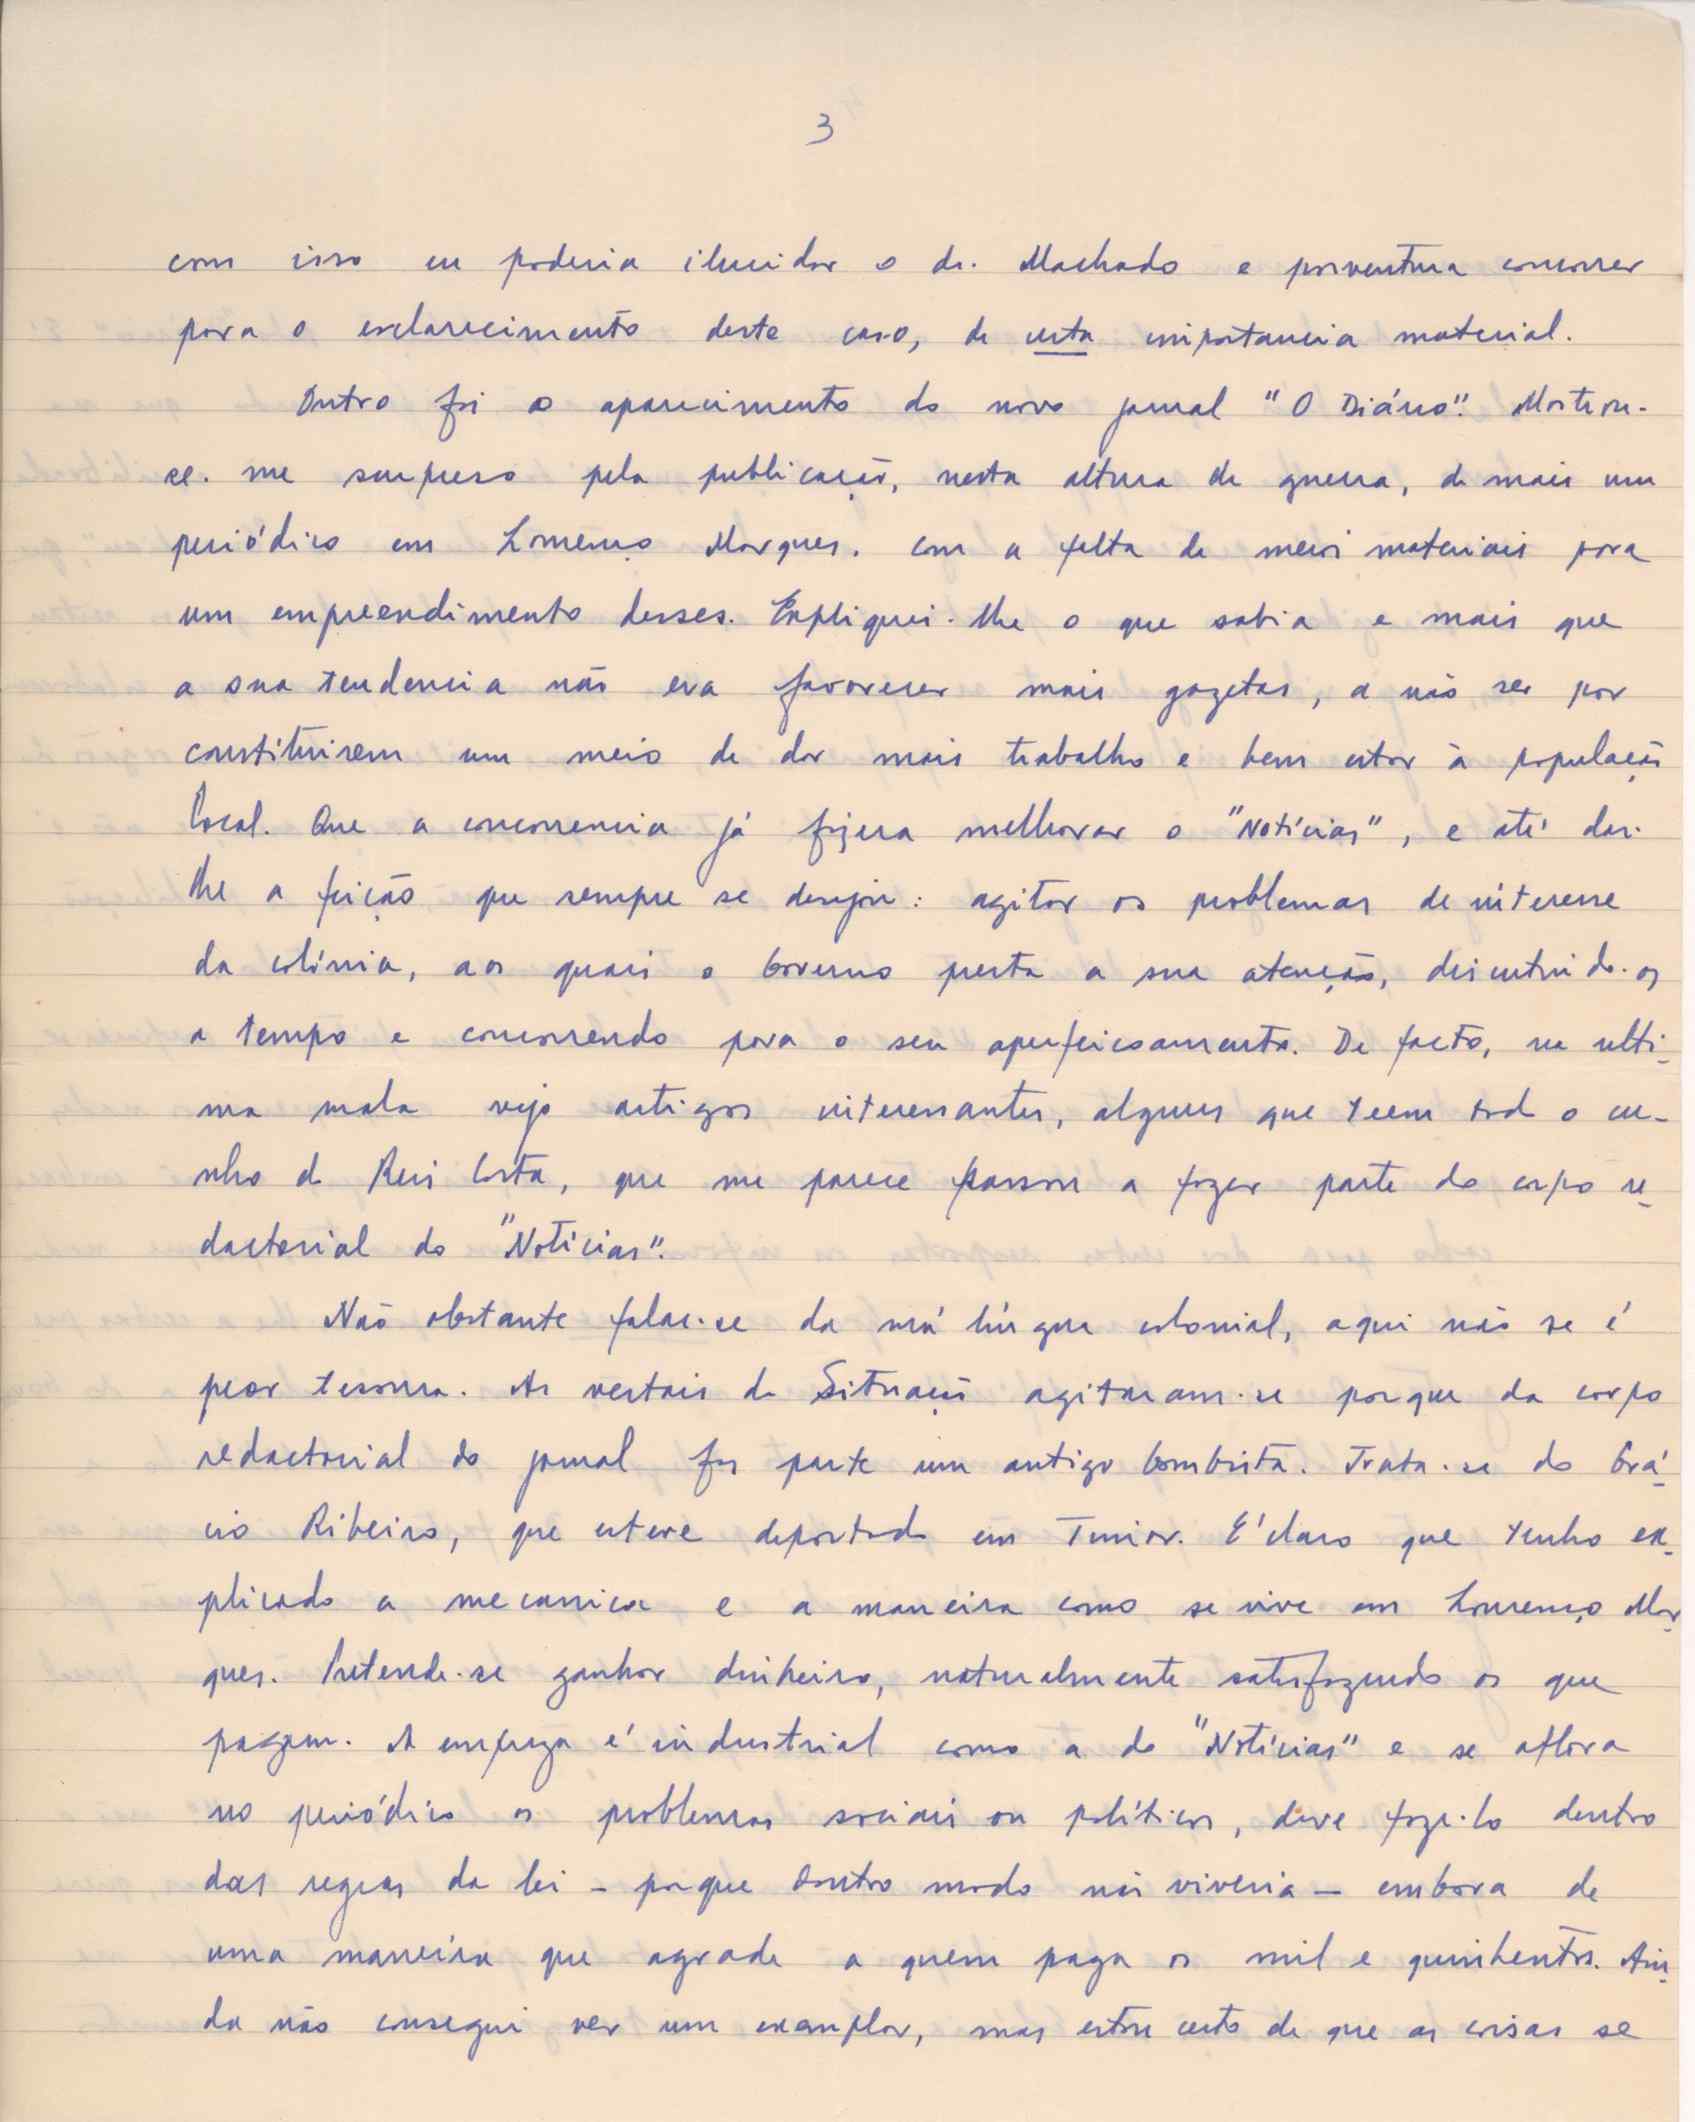 3
com isso eu poderia ilucidar o dr. Machado e porventura concorrer
para o esclarecimento deste caso, de certa importancia material.
Outro foi o aparecimento do novo jornal "O Diário". Mostrou-
se-me surpreso pela publicação, nesta altura de guerra, de mais um
periódico em Lourenço Marques. com a falta de meios materiais para
um empreendimento desses. Expliquei-lhe o que sabia e mais que
a sua tendencia não era favorecer mais gazetas, a não ser por
constituirem um meio de dar mais trabalho e bem estar à população
local. Que a concorrencia já fizera melhorar o "Notícias", e até dar-
lhe a feição que sempre se desejou: agitar os problemas de interesse
da colónia, aos quais o Governo presta a sua atenção, discutindo-os
a tempo e concorrendo para o seu aperfeiçoamento. De facto, na ulti-
ma mala vejo artigos interessantes, alguns que teem todo o cu-
nho do Reis Costa, que me parece passou a fazer parte do corpo re-
dactorial do "Notícias".
Não obstante falar-se da má língua colonial, aqui não se é
peor tesoura. As vestais da Situação agitaram-se porque do corpo
redactorial do jornal faz parte um antigo bombista. Trata-se do Grá-
cio Ribeiro, que esteve deportado em Timor. É claro que tenho ex-
plicado a mecanica e a maneira como se vive em Lourenço Mar-
ques. Pretende-se ganhar dinheiro, naturalmente satisfazendo os que
pagam. A empreza é industrial como a do "Notícias" e se aflora
no periódico os problemas sociais ou políticos, deve faze-lo dentro
das regras da lei - porque doutro modo não viveria - embora de
uma maneira que agrade a quem paga os mil e quinhentos. Ain-
da não consegui ver um exemplar, mas estou certo de que as coisas se